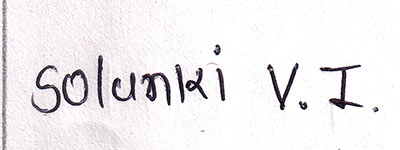 Solunki V. I.